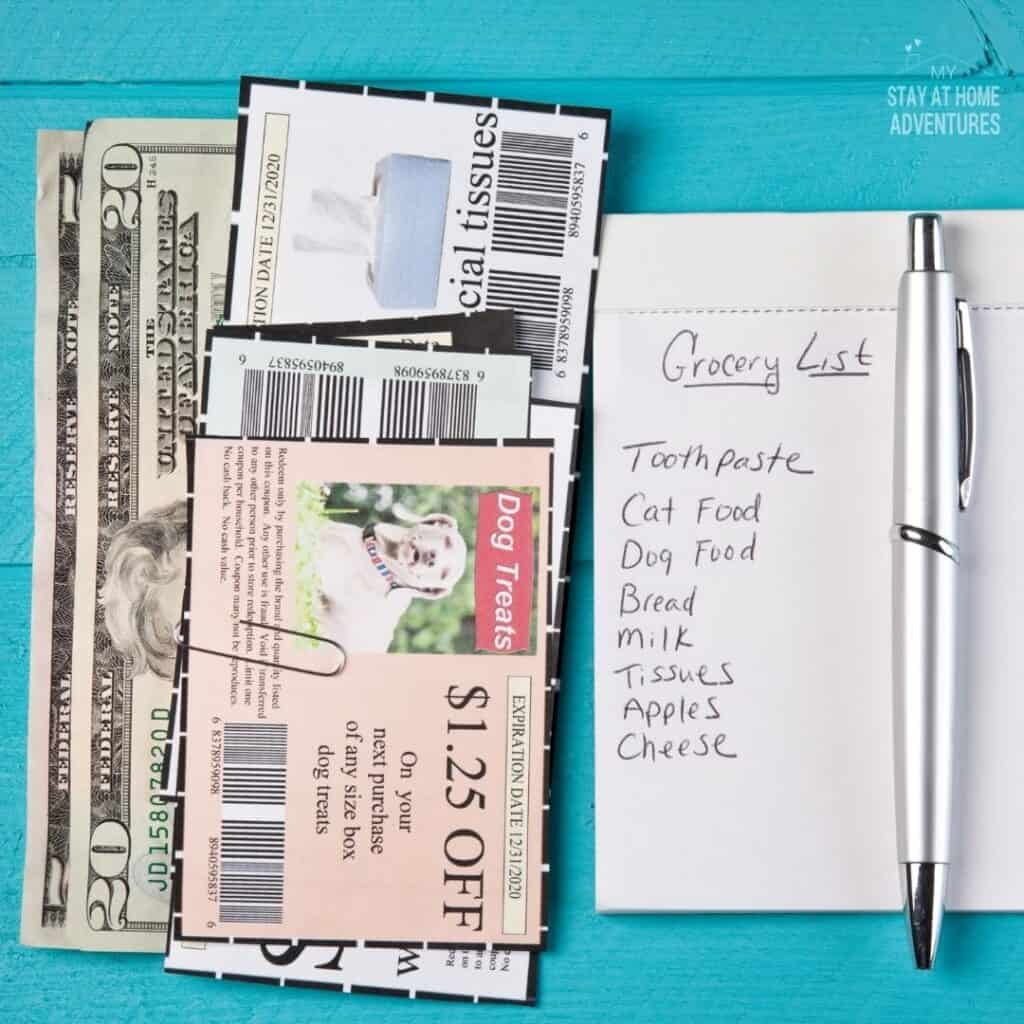 MY
STAY AT HOME
ADVENTURES
20
H
FEDERAL RESERVE NOTE
THE
UNITED STATES
OF AMERICA
JD15807820D
20
EXPIRATION DATE 12/31/2020
cial tissues
8940595837 6
6 8378959098
6 8378959098
8940595837 6
Dog Treats
Redeem only by purchasing the brand and quantity listed
on this coupon. Any other use is fraud. Void transferred
to any other person prior to store redemption. Limit one
coupon per household. Coupon many not be reproduces.
No cash back. No cash value.
EXPIRATION DATE 12/31/2020
$1.25 OFF
On your
next purchase
of any size box
dog treats
6 8378959098
8940595837 6
Grocery List
Toothpaste
Cat Food
Dog Food
Bread
Milk
Tissues
Apples
Cheese